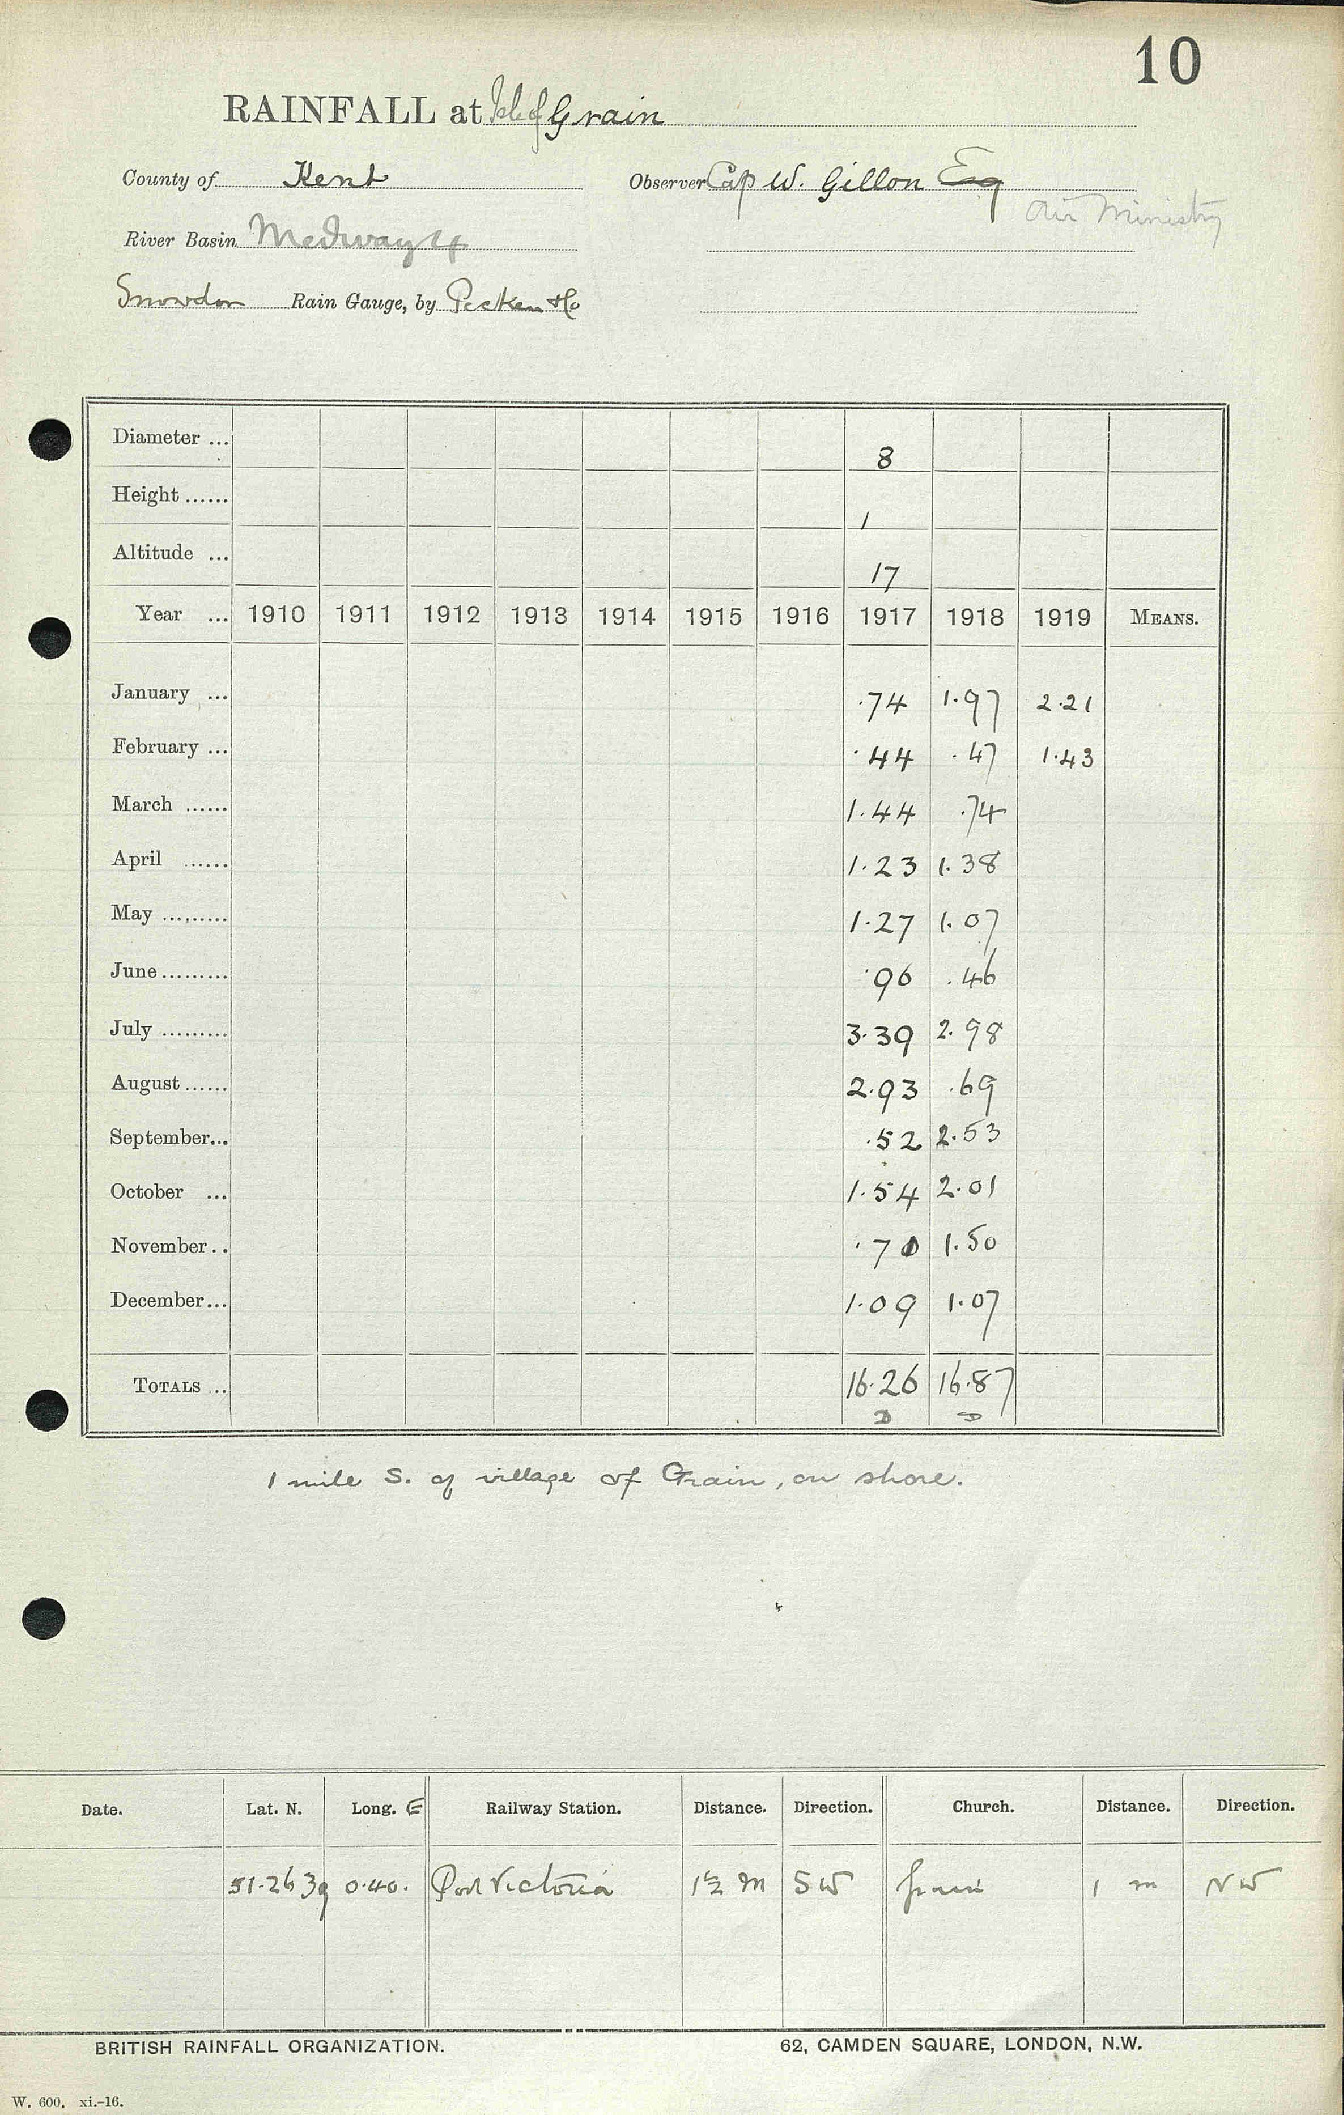 10
RAINFALL at Isle of Grain
County of Kent Observer Cap W. Gillon Esq
Air Ministry
River Basin Medway 4
Snowdon Rain Gauge, by
Diameter ... 8
Height ...... 1
Altitude ... 17
Year ... 1910 1911 1912 1913 1914 1915 1916 1917 1918 1919 MEANS.
January ... .74 1.97 2.21
February ... .44 .47 1.43
March ...... 1.44 .74
April ...... 1.23 1.38
May ......... 1.27 1.07
June ......... .96 .46
July ......... 3.39 2.98
August ...... 2.93 .69
September... .52 2.53
October ... 1.54 2.01
November.. .71 1.50
December... 1.09 1.07
TOTALS ... 16.26 16.87
D D
1 mile S. of village of Grain, on shore.
Date. Lat. N. Long. E Railway Station. Distance. Direction. Church. Distance. Direction.
51.26 39 0.40. Port Victoria 1½ m SW Grain 1 m NW
BRITISH RAINFALL ORGANIZATION. 62, CAMDEN SQUARE, LONDON, N.W.
W. 600. xi.-16.